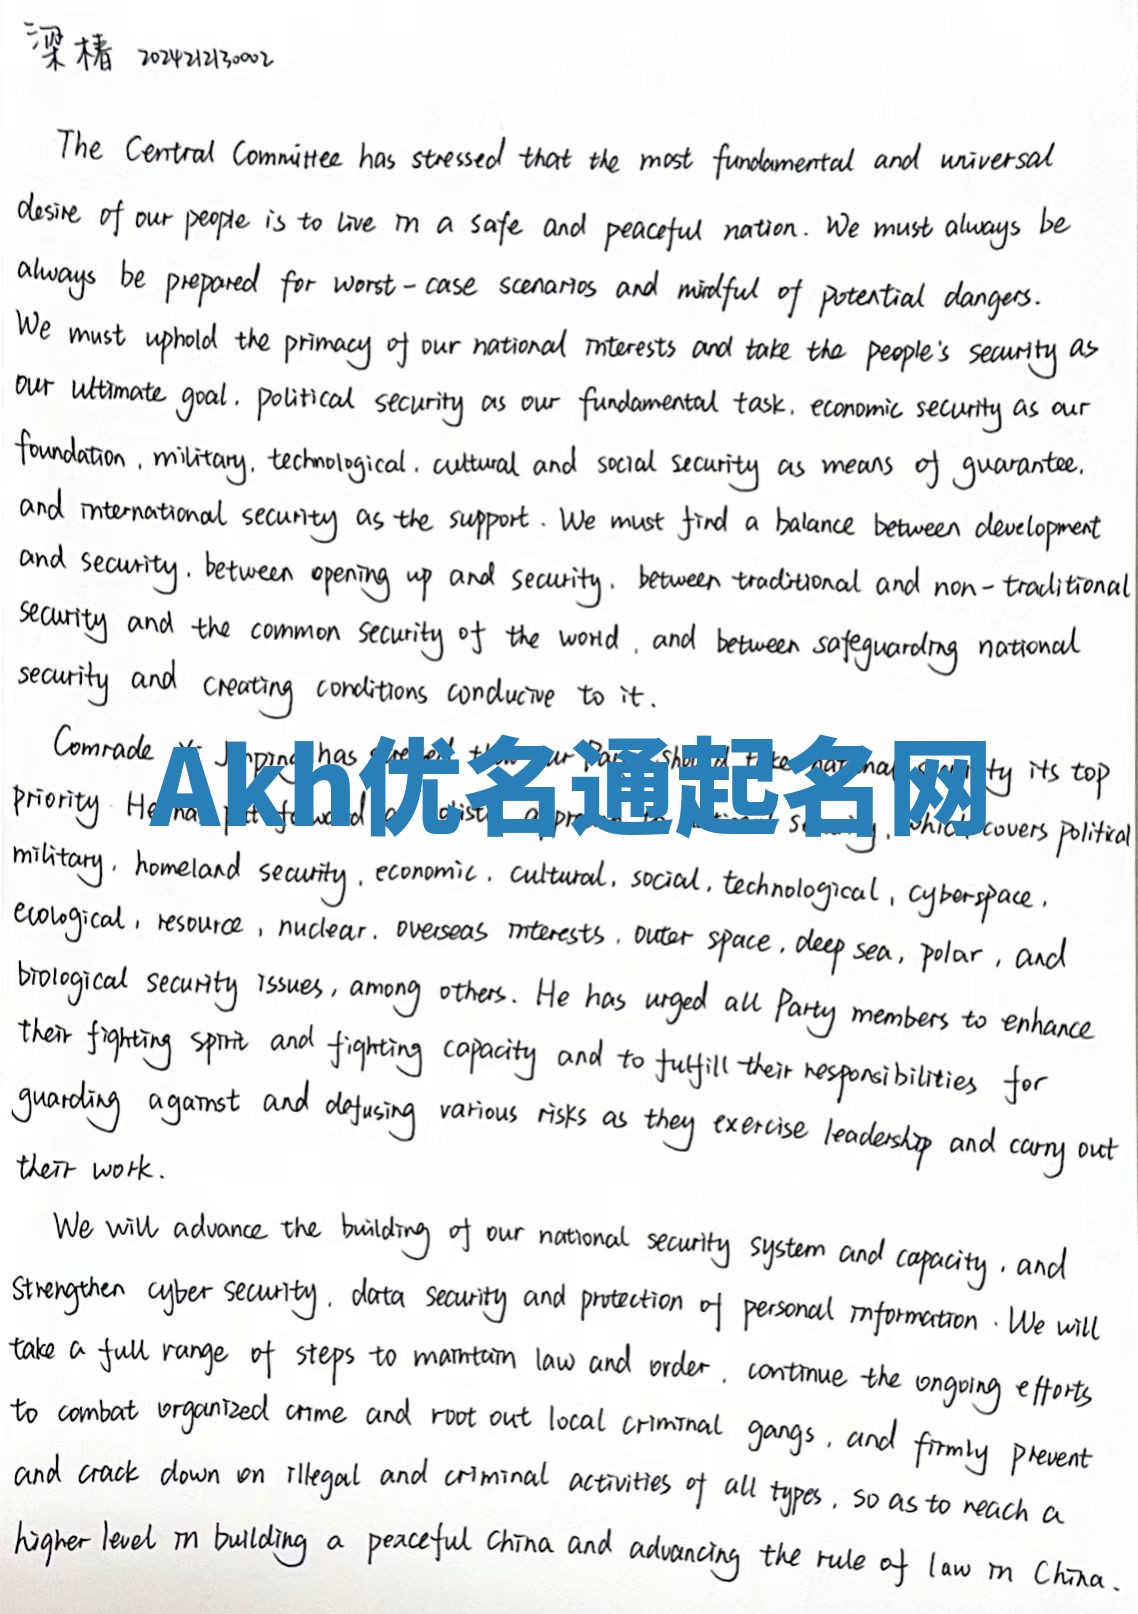 梁椿 2024212130002
The Central Committee has stressed that the most fundamental and universal
desire of our people is to live in a safe and peaceful nation. We must always be
always be prepared for worst-case scenarios and mindful of potential dangers.
We must uphold the primacy of our national interests and take the people's security as
our ultimate goal, political security as our fundamental task, economic security as our
foundation, military, technological, cultural and social security as means of guarantee,
and international security as the support. We must find a balance between development
and security, between opening up and security, between traditional and non-traditional
security and the common security of the world, and between safeguarding national
security and creating conditions conducive to it.
Comrade Jinping has our Party should take national security its top
priority. He has put forward a approach to security, which covers political
military, homeland security, economic, cultural, social, technological, cyberspace,
ecological, resource, nuclear, overseas interests, outer space, deep sea, polar, and
biological security issues, among others. He has urged all Party members to enhance
their fighting spirit and fighting capacity and to fulfill their responsibilities for
guarding against and defusing various risks as they exercise leadership and carry out
their work.
We will advance the building of our national security system and capacity, and
strengthen cyber security, data security and protection of personal information. We will
take a full range of steps to maintain law and order, continue the ongoing efforts
to combat organized crime and root out local criminal gangs, and firmly prevent
and crack down on illegal and criminal activities of all types, so as to reach a
higher level in building a peaceful China and advancing the rule of law in China.
Akh优名通起名网